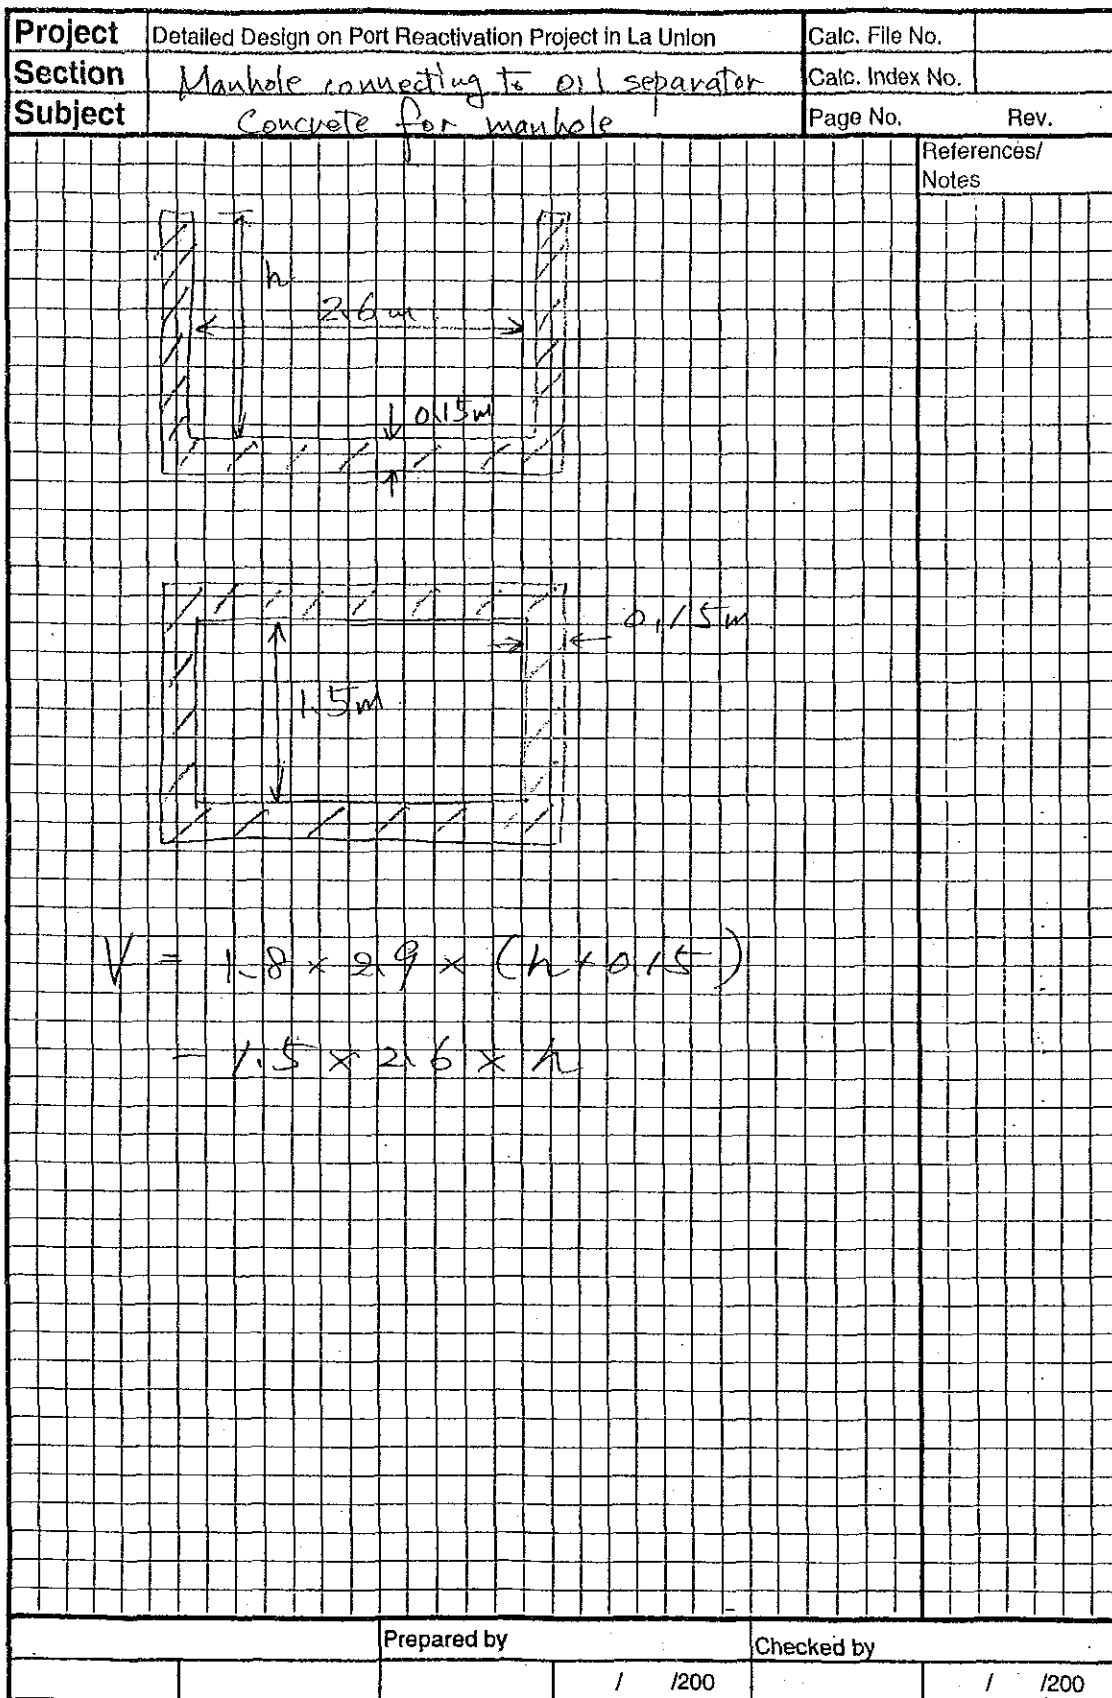 Project Detailed Design on Port Reactivation Project in La Union Calc. File No.
Section Manhole connecting to oil separator Calc. Index No.
Subject Concrete for manhole Page No. Rev.
References/
Notes
h
2.6m
0.15m
0.15m
1.5m
V = 1.8 × 2.9 × (h+0.15)
- 1.5 × 2.6 × h
Prepared by Checked by
/ /200 / /200